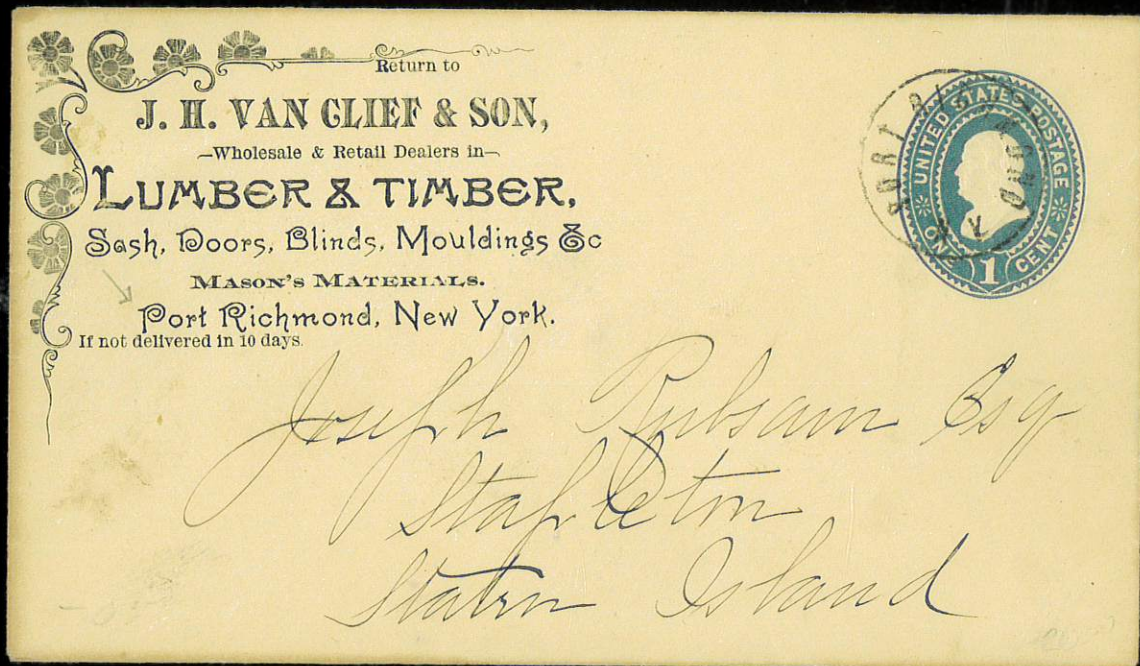 Return to
J. H. VAN CLIEF & SON,
Wholesale & Retail Dealers in
LUMBER & TIMBER,
Sash, Doors, Blinds, Mouldings &c
MASON'S MATERIALS.
Port Richmond, New York.
If not delivered in 10 days.
PORT RICHMOND N.Y.
UNITED STATES POSTAGE
ONE 1 CENT
Joseph Rubsam Esq
Stapleton
Staten Island